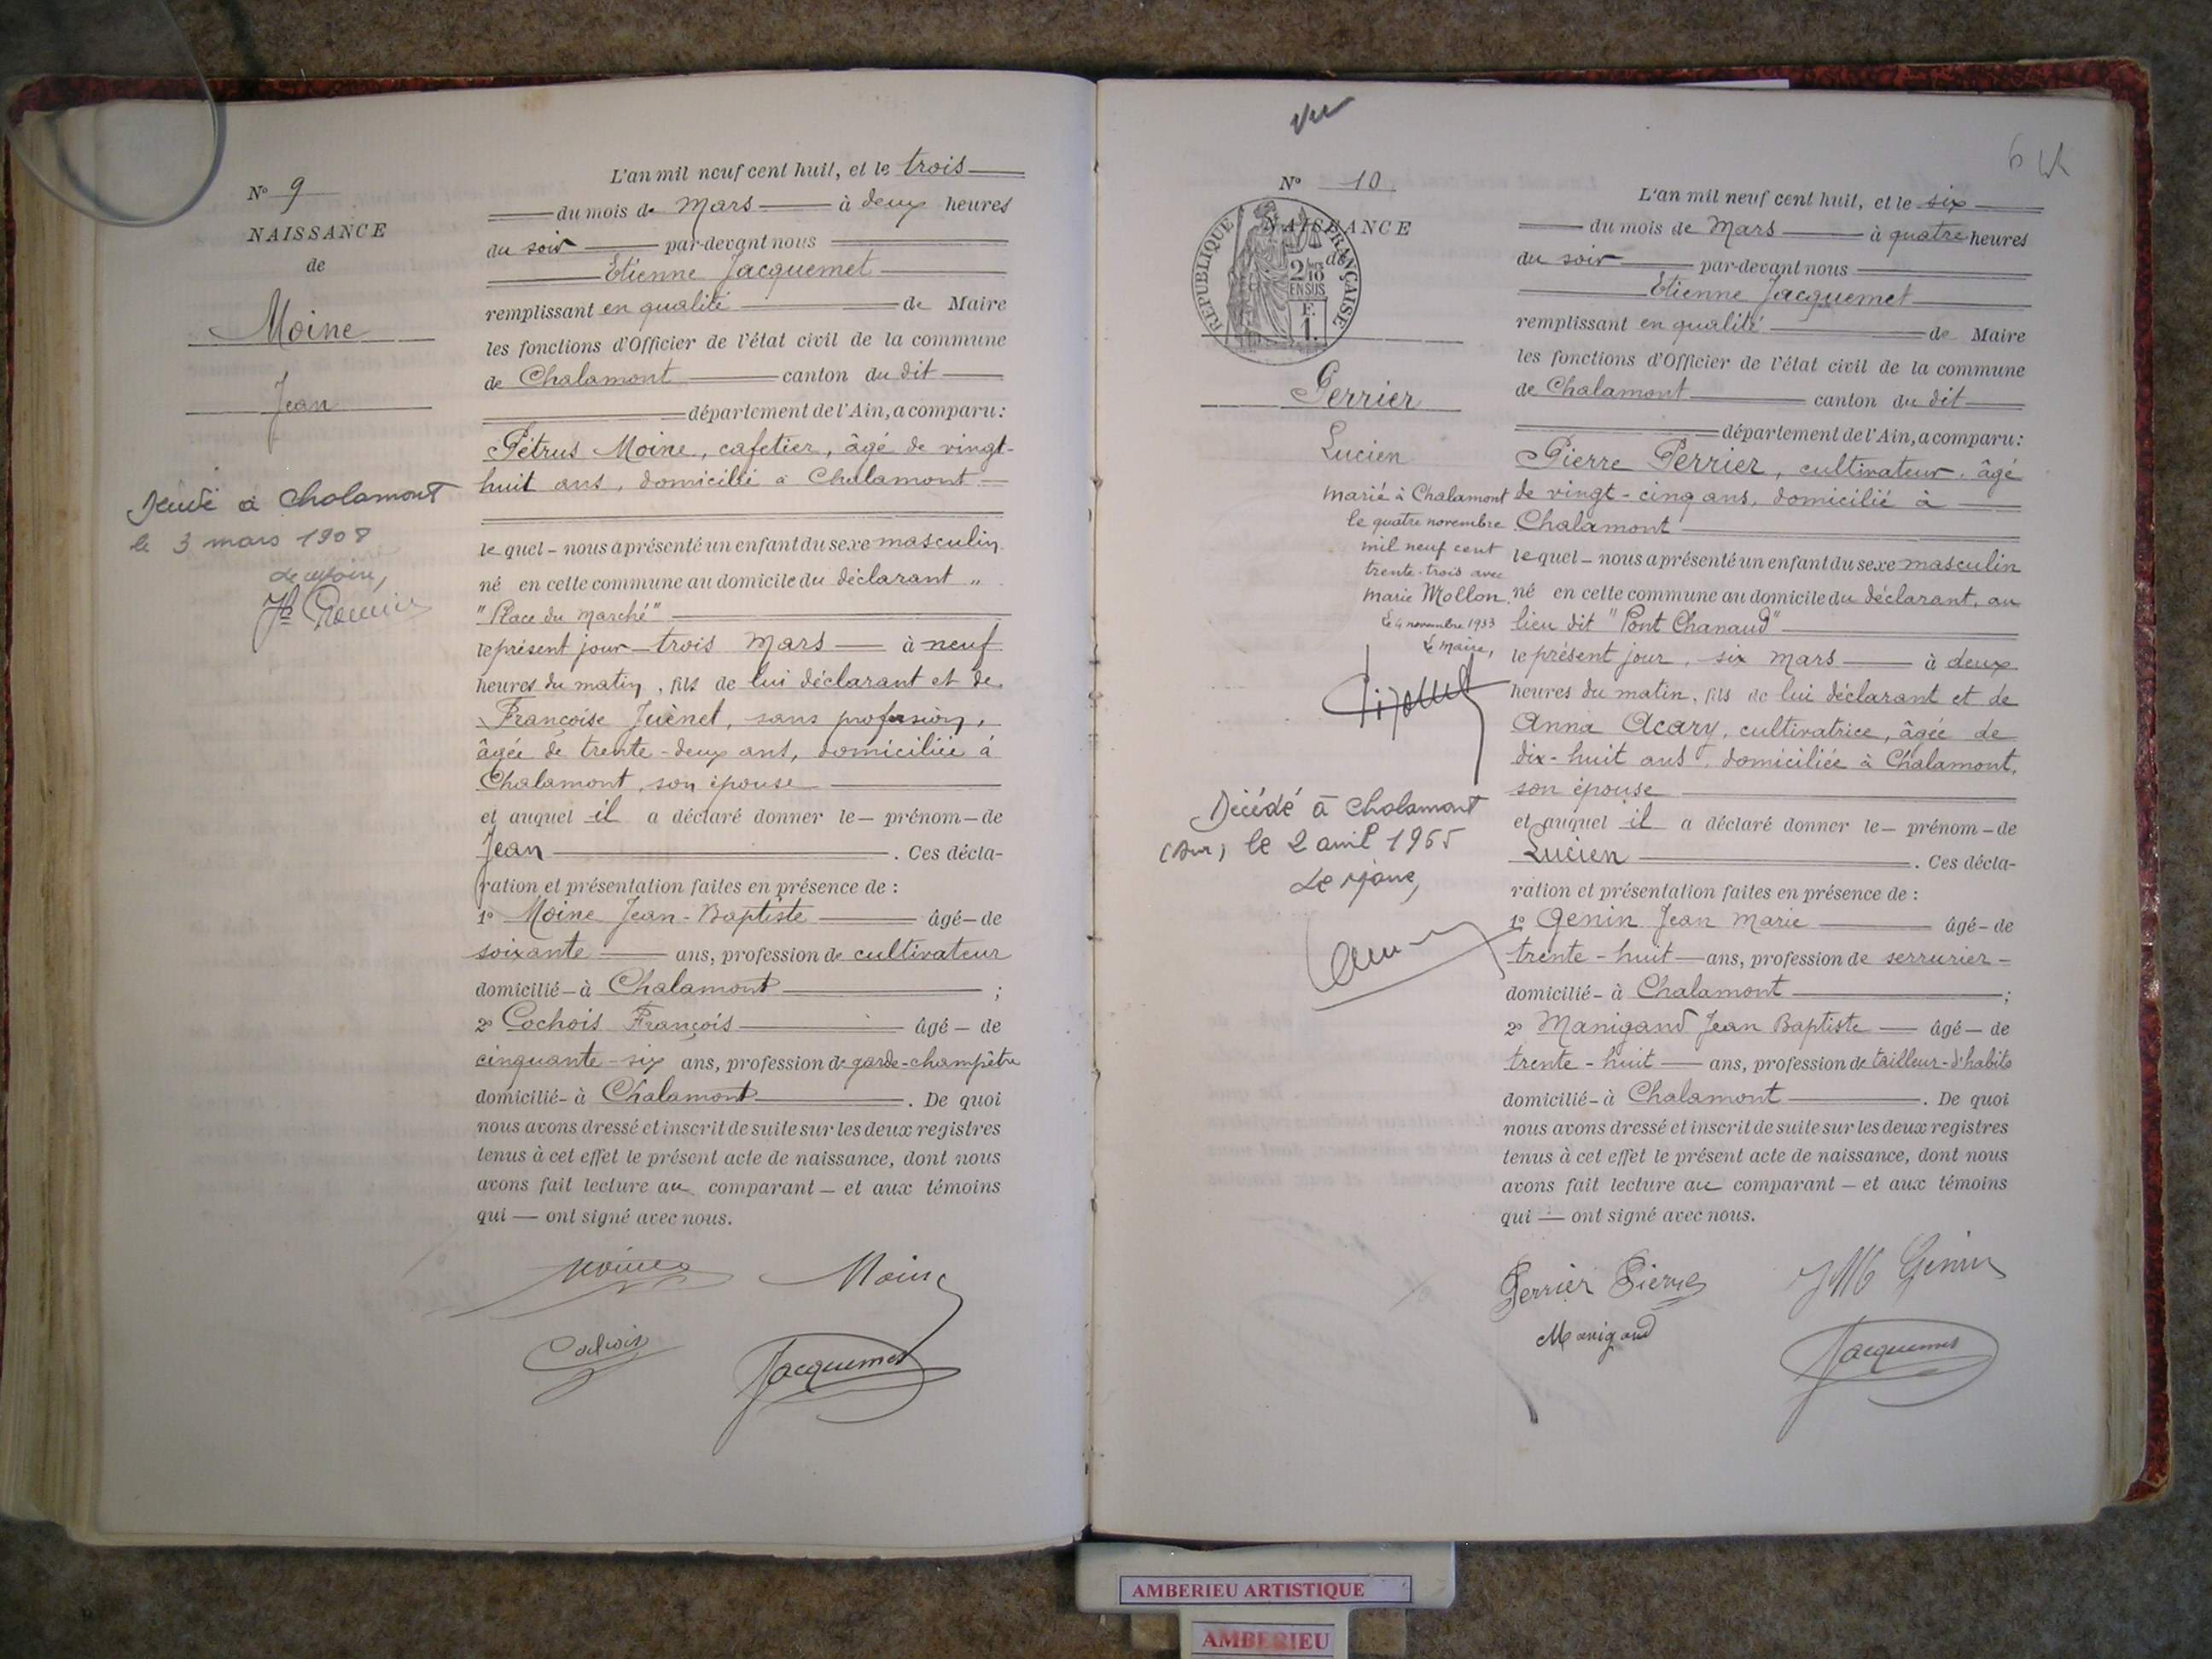 N° 9
NAISSANCE
de
Moine
Jean
à Chalamont
le 3 mars 1908
L'an mil neuf cent huit, et le trois
du mois de Mars à deux heures
du soir par-devant nous
Etienne Jacquemet
remplissant en qualité de Maire
les fonctions d'Officier de l'état civil de la commune
de Chalamont canton du dit
département de l'Ain, a comparu:
Pétrus Moine, cafetier, âgé de vingt-
huit ans, domicilié à Chalamont
lequel - nous a présenté un enfant du sexe masculin
né en cette commune au domicile du déclarant "
"Place du Marché"
le présent jour trois Mars à neuf
heures du matin, fils de lui déclarant et de
Françoise Juènet, sans profession,
âgée de trente-deux ans, domiciliée à
Chalamont, son épouse
et auquel il a déclaré donner le - prénom - de
Jean. Ces décla-
ration et présentation faites en présence de :
1° Moine Jean-Baptiste âgé - de
soixante ans, profession de cultivateur
domicilié - à Chalamont ;
2° Cochois François âgé - de
cinquante-six ans, profession de garde-champêtre
domicilié - à Chalamont. De quoi
nous avons dressé et inscrit de suite sur les deux registres
tenus à cet effet le présent acte de naissance, dont nous
avons fait lecture au comparant - et aux témoins
qui - ont signé avec nous.
Moine Moine
Cochois Jacquemet
Vu
6
N° 10
NAISSANCE
de
REPUBLIQUE FRANÇAISE
2/10 EN SUS
F.
1.
Perrier
Lucien
marié à Chalamont
le quatre novembre
mil neuf cent
trente-trois avec
Marie Mollon
Le 4 novembre 1933
Le Maire,
Décédé à Chalamont
(Ain) le 2 avril 1965
Le Maire,
L'an mil neuf cent huit, et le six
du mois de Mars à quatre heures
du soir par-devant nous
Etienne Jacquemet
remplissant en qualité de Maire
les fonctions d'Officier de l'état civil de la commune
de Chalamont canton du dit
département de l'Ain, a comparu:
Pierre Perrier, cultivateur, âgé
de vingt-cinq ans, domicilié à
Chalamont
lequel - nous a présenté un enfant du sexe masculin
né en cette commune au domicile du déclarant, au
lieu dit "Pont Chanaud"
le présent jour, six Mars à deux
heures du matin, fils de lui déclarant et de
Anna Acary, cultivatrice, âgée de
dix-huit ans, domiciliée à Chalamont,
son épouse
et auquel il a déclaré donner le - prénom - de
Lucien. Ces décla-
ration et présentation faites en présence de :
1° Genin Jean Marie âgé - de
trente-huit ans, profession de serrurier -
domicilié - à Chalamont ;
2° Manigand Jean Baptiste âgé - de
trente-huit ans, profession de tailleur-d'habits
domicilié - à Chalamont. De quoi
nous avons dressé et inscrit de suite sur les deux registres
tenus à cet effet le présent acte de naissance, dont nous
avons fait lecture au comparant - et aux témoins
qui - ont signé avec nous.
Perrier Pierre JM Genin
Manigand Jacquemet
AMBERIEU ARTISTIQUE
AMBERIEU